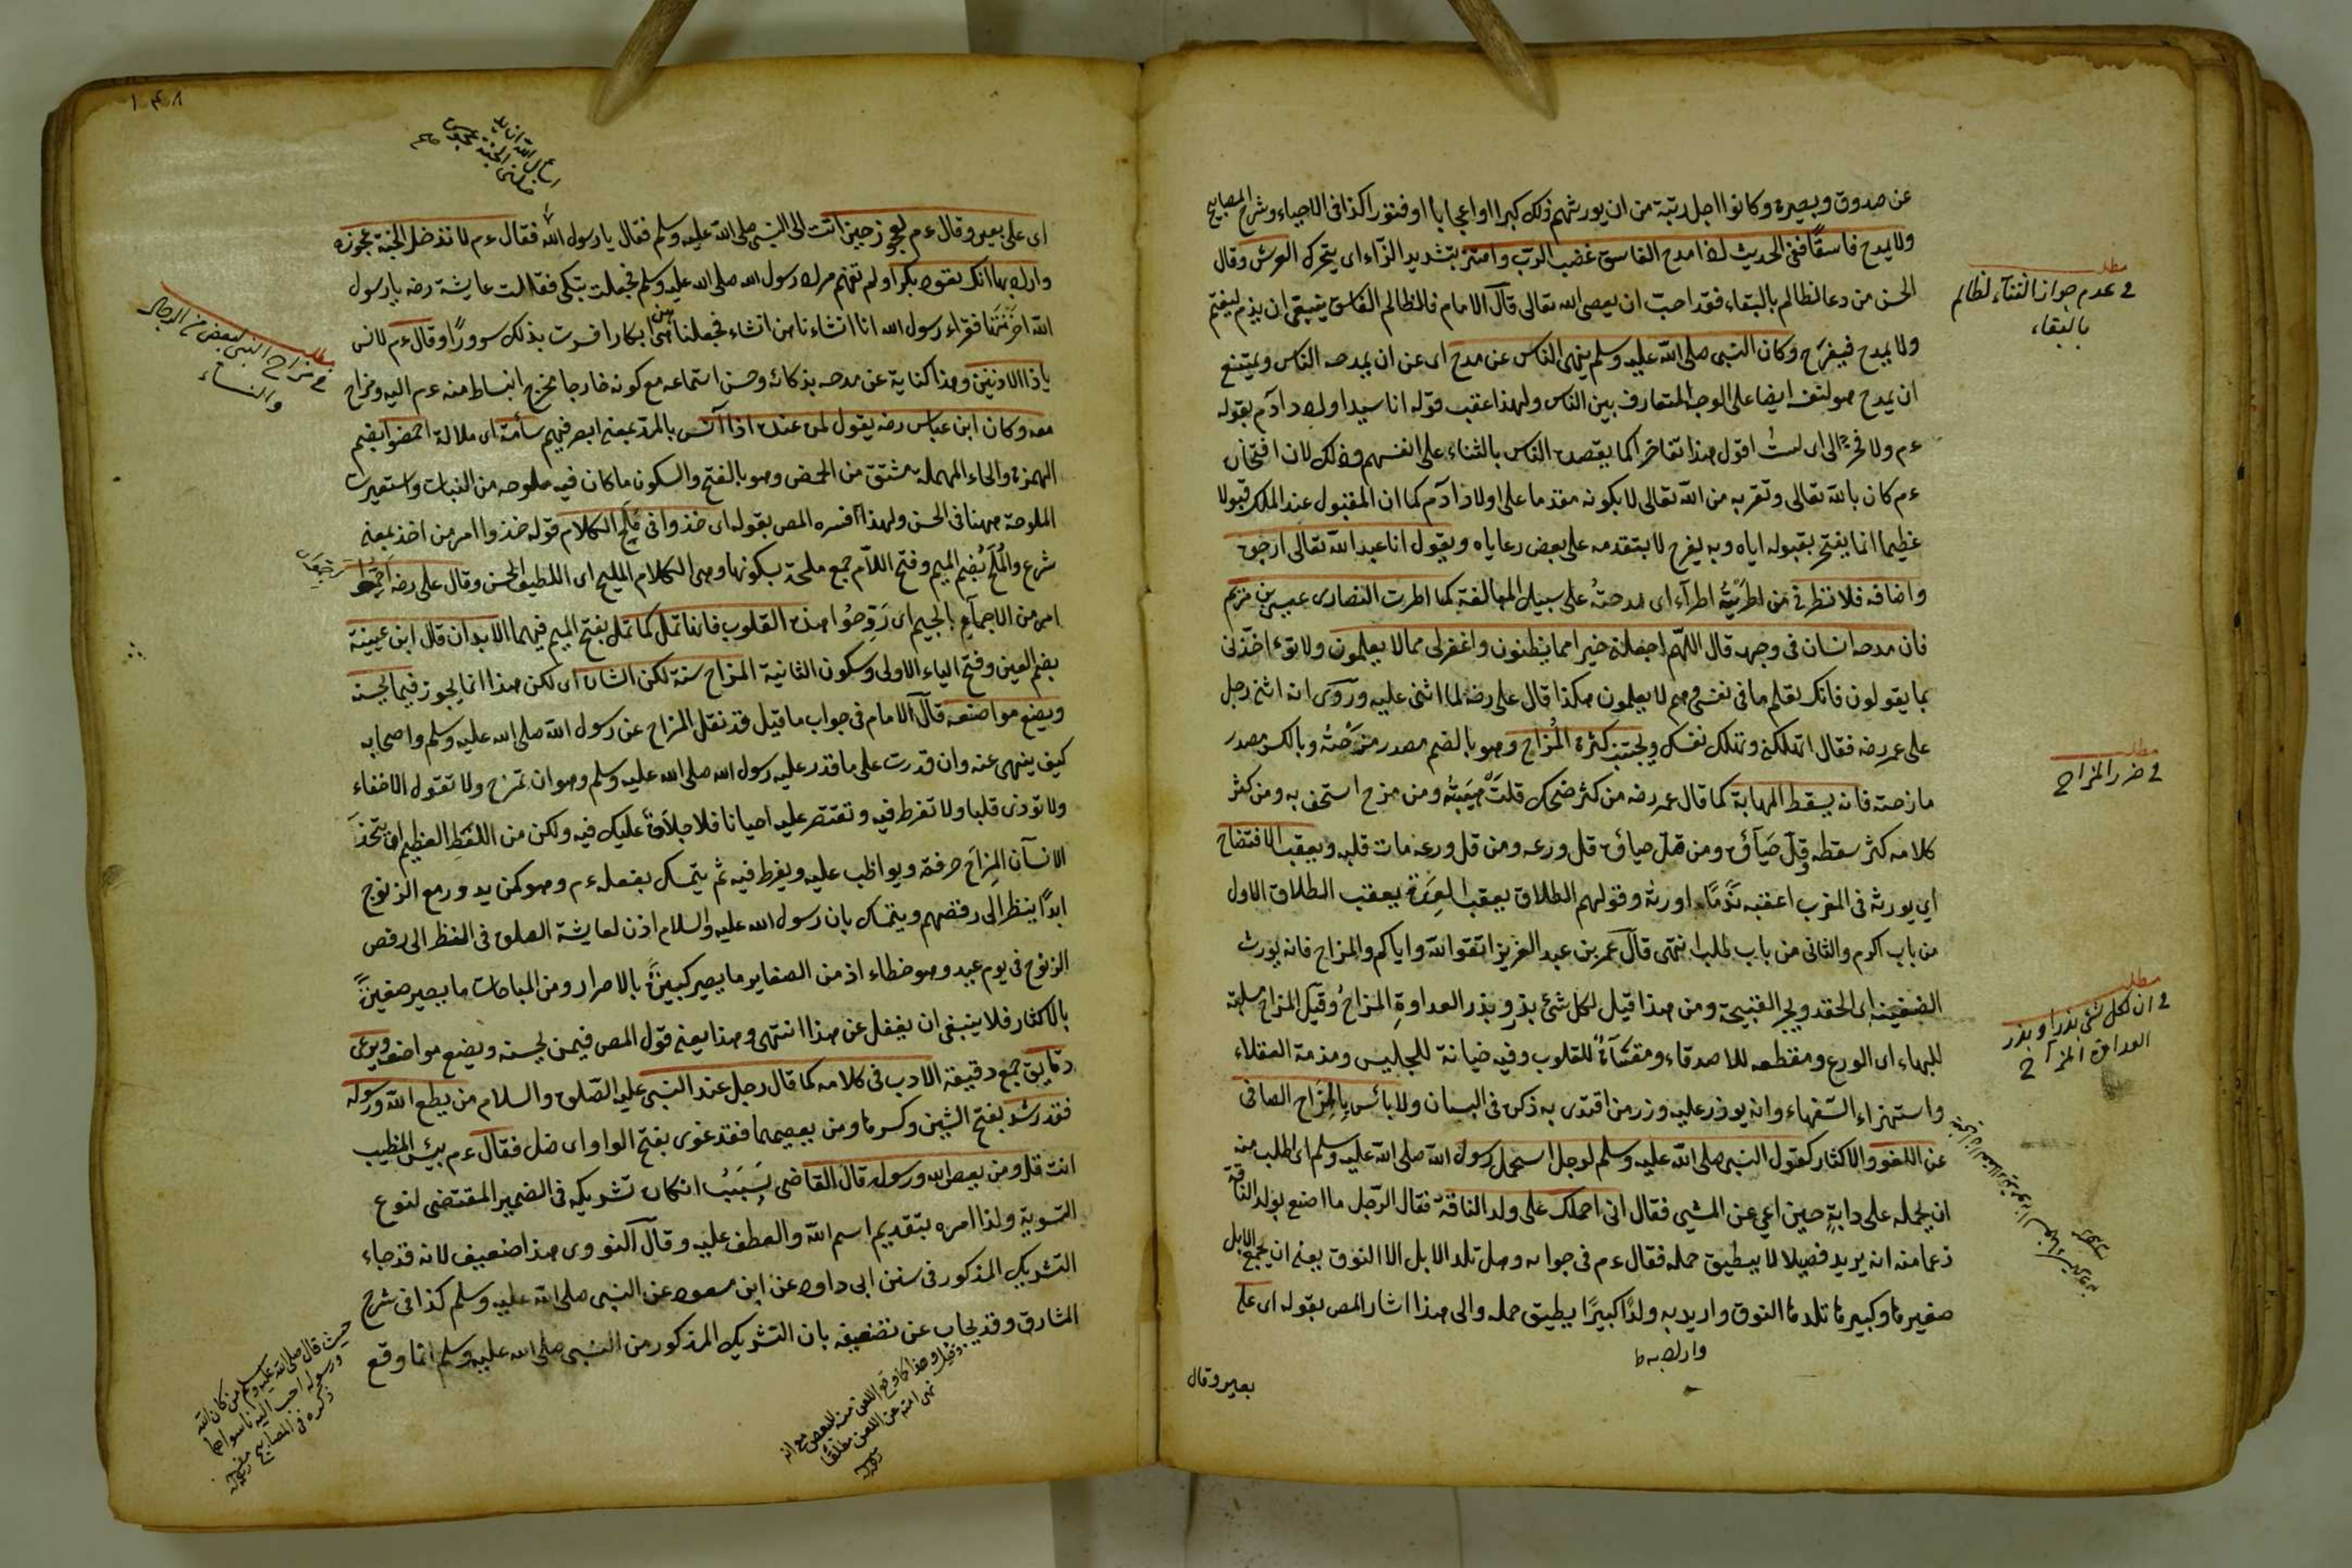 عن صدوق وبصيرة وكانوا اجل رتبة من ان يورثهم ذلك كبرا او اعجابا او فتورا كذا في الاحياء وشرح المصابيح
ولا يمدح فاسقًا ففي الحديث اذا مدح الفاسق غضب الربّ واهتز بتشديد الزّاء اى يتحرك العرش وقال
الحسن من دعا لظالم بالبقاء فقد احبّ ان يعصى الله تعالى قال الامام فالظالم الفاسق ينبغى ان يذم ليغتم
ولا يمدح فيفرح وكان النبى صلى الله عليه وسلم ينهى الناس عن مدحه اى عن ان يمدحه الناس ويمتنع
ان يمدح هو لنفسه ايضا على الوجه المتعارف بين الناس ولهذا عقب قوله انا سيد اولاد ادم بقوله
ءم ولا فخر اى لست اقول هذا تفاخرا كما يقصده الناس بالثناء على انفسهم وذلك لان افتخاره
ءم كان بالله تعالى وتقربه من الله تعالى لا بكونه مقدما على اولاد ادم كما ان المقبول عند الملك قبولا
عظيما انما يفتخر بقبوله اياه وبه يفرح لا بتقدمه على بعض رعاياه ويقول انا عبد الله تعالى ارجوه
واخافه فلا تطرنى من اطريته اطرآء اى مدحته على سبيل المبالغة كما اطرت النصارى عيسى بن مريم
فان مدحه انسان فى وجهه قال اللهم اجعلنى خيرا مما يظنون واغفر لى مما لا يعلمون ولا تؤاخذنى
بما يقولون فانك تعلم ما فى نفسى وهم لا يعلمون هكذا قال على رضه لما اثنى عليه وروى انه اثنى رجل
على عمر رضه فقال اتهلكنى وتهلك نفسك ويجتنب كثرة المُزاح وهو بالضم مصدر مزحته وبالكسر مصدر
مازحته فانه يسقط المهابة كما قال عمر رضه من كثر ضحكه قلّت هيبته ومن مزح استخف به ومن كثر
كلامه كثر سقطه وقل حياؤه ومن قلّ حياؤه قل ورعه ومن قل ورعه مات قلبه ويعقب الافتضاح
اي يورثه فى المغرب اعقبه ندمًا اورثه وقولهم الطلاق يعقب العدة يعقب الطلاق الاول
من باب اكرم والثانى من باب طلب انتهى قال عمر بن عبد العزيز اتقوا الله واياكم والمزاح فانه يورث
الضغينة اى الحقد ويجر القبيحة ومن هذا قيل لكل شئ بذر وبذر العداوة المزاح وقيل المزاح مسلبة
للبهاء اى الورع ومقطعه للاصدقاء ومقسآة للقلوب وفيه خيانة للجليس ومذمة العقلاء
واستهزاء السفهاء وانه يوزر عليه وزر من اقتدى به ذكره فى البستان ولا بائس بالمزاح الصافى
عن اللغو والاكثار كقول النبى صلى الله عليه وسلم لرجل استحمل رسول الله صلى الله عليه وسلم اى اطلب منه
ان يحمله على دابة حين اعي عن المشى فقال انى احملك على ولد الناقة فقال الرّجل ما اصنع بولد الناقة
زعما منه انه يريد فصيلا لا يطيق حمله فقال ءم فى جوابه وهل تلد الابل الا النوق يعنى ان جميع الابل
صغيرها وكبيرها تلدها النوق واريد به ولدًا كبيرًا يطيق حمله والى هذا اشار المص بقوله اى على
واراد به ط
بعير وقال
مطلب
فى عدم جواز الثنآء لظالم
بالبقاء
مطلب
فى ضرر المزاح
مطلب
فى ان لكل شئ بذرا وبذر
العداوة المزاح
١٤٨
اى على بعير وقال ءم لعجوز حين اتت الى النبى صلى الله عليه وسلم فقال يا رسول الله فقال ءم لا تدخل الجنة عجوزة
واراد بها انك تعود بكرا ولم تفهم مراد رسول الله صلى الله عليه وسلم فجعلت تبكى فقالت عايشة رضه يا رسول
الله احزنتها فقراء رسول الله انا انشاءناهن انشاء فجعلناهن ابكارا فسرت بذلك سرورًا وقال ءم لانس
يا ذا الاذنين وهذا كناية عن مدحه بذكائه وحسن استماعه مع كونه خارجا مخرج انبساط منه ءم اليه ومزاح
معه وكان ابن عباس رضه يقول لمن عنده اذا آنس بالمرّة بمعنى ابصر فيهم سأمة اى ملالة احمضوا بضم
الهمزة والحاء المهملة مشتق من الحمض وهو بالفتح والسكون ما كان فيه ملوحه من النبات واستعيرت
الملوحة ههنا فى الحسن ولهذا فسره المص بقوله اى خذوا فى مُلَح الكلام قوله خذوا امر من اخذ بمعنى
شرع والمُلَح بُضم الميم وفتح اللّام جمع ملحة بسكونها وهى الكلام المليح اى اللطيف الحسن وقال على رضه اجِمُّوا
امر من الاجمآم بالجيم اى رَوِّحُوا هذه القلوب فانها تمل كما تمل بفتح الميم فيهما الابدان قال ابن عيينة
بضم العين وفتح الياء الاولى وسكون الثانية المزاح سنة لكن الشان اى لكن هذا انما يجوز فيما يحسنه
ويضع مواضعه قال الامام فى جواب ما قيل قد نقل المزاح عن رسول الله صلى الله عليه وسلم واصحابه
كيف ينهى عنه وان قدرت على ما قدر عليه رسول الله صلى الله عليه وسلم وهو ان تمزح ولا تقول الا حقاء
ولا تؤذى قلبا ولا تفرط فيه وتقتصر عليه احيانا فلا عليك فيه ولكن من الغلط العظيم ان يتخذ
الانسان المزاح حرفة ويواظب عليه ويفرط فيه ثم يتمسك بفعله ءم وهو كمن يدور مع الزنوج
ابدًا ينظر الى رقصهم ويتمسك بان رسول الله عليه والسلام اذن لعايشة فى النظر الى رقص
الزنوج فى يوم عيد وهو خطاء اذ من الصغاير ما يصير كبيرة بالاصرار ومن المباحات ما يصير صغيرة
بالاكثار فلا ينبغى ان يغفل عن هذا انتهى وهذا يعنى قول المص فيمن يحسنه ويضع مواضعه ويرعى
دقايق جمع دقيقة الادب فى كلامه كما قال رجل عند النبى عليه الصّلوة والسلام من يطع الله ورسوله
فقد رشد بفتح الشين وكسرها ومن يعصهما فقد غوى بفتح الواو اى ضل فقال ءم بئس الخطيب
انت قل ومن يعص الله ورسوله قال القاضى سببه انكار تشريكه فى الضمير المقتضى لنوع
التسوية ولذا امره بتقديم اسم الله والعطف عليه وقال النووى هذا ضعيف لانه قد جاء
التشريك المذكور فى سنن ابى داود عن ابن مسعود عن النبى صلى الله عليه وسلم كذا فى شرح
المشارق وقد يجاب عن تضعيفه بان التشريك المذكور من النبى صلى الله عليه وسلم انما وقع
مطلب
فى مزاح النبى لبعض من الرجال
والنساء
حيث قال صلى الله عليه وسلم من كان الله
ورسوله احب اليه مما سواهما
ذكره فى المصابيح
وقيل وهذا كما وقع اللعن منه لبعض مع انه
نهى امته عن اللعن مطلقًا